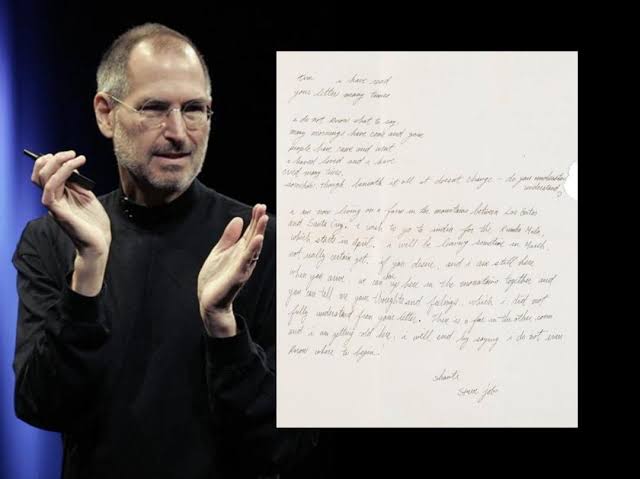 tim i have read
your letter many times
i do not know what to say.
many mornings have come and gone
people have came and went
i have loved and i have
cried many times.
somehow, though, beneath it all it doesn't change - do you
understand?
i am now living on a farm in the mountains between Los Gatos
and Santa Cruz. i wish to go to india for the Kumbha Mela,
which starts in April. i will be leaving sometime in March,
not really certain yet. if you desire, and i am still here
when you arrive, we can be up here in the mountains together and
you can tell me your thoughts and feelings, which i did not
fully understand from your letter. There is a fire in the other room
and i am getting cold here. i will end by saying i do not even
know where to begin.
shanti
steve jobs